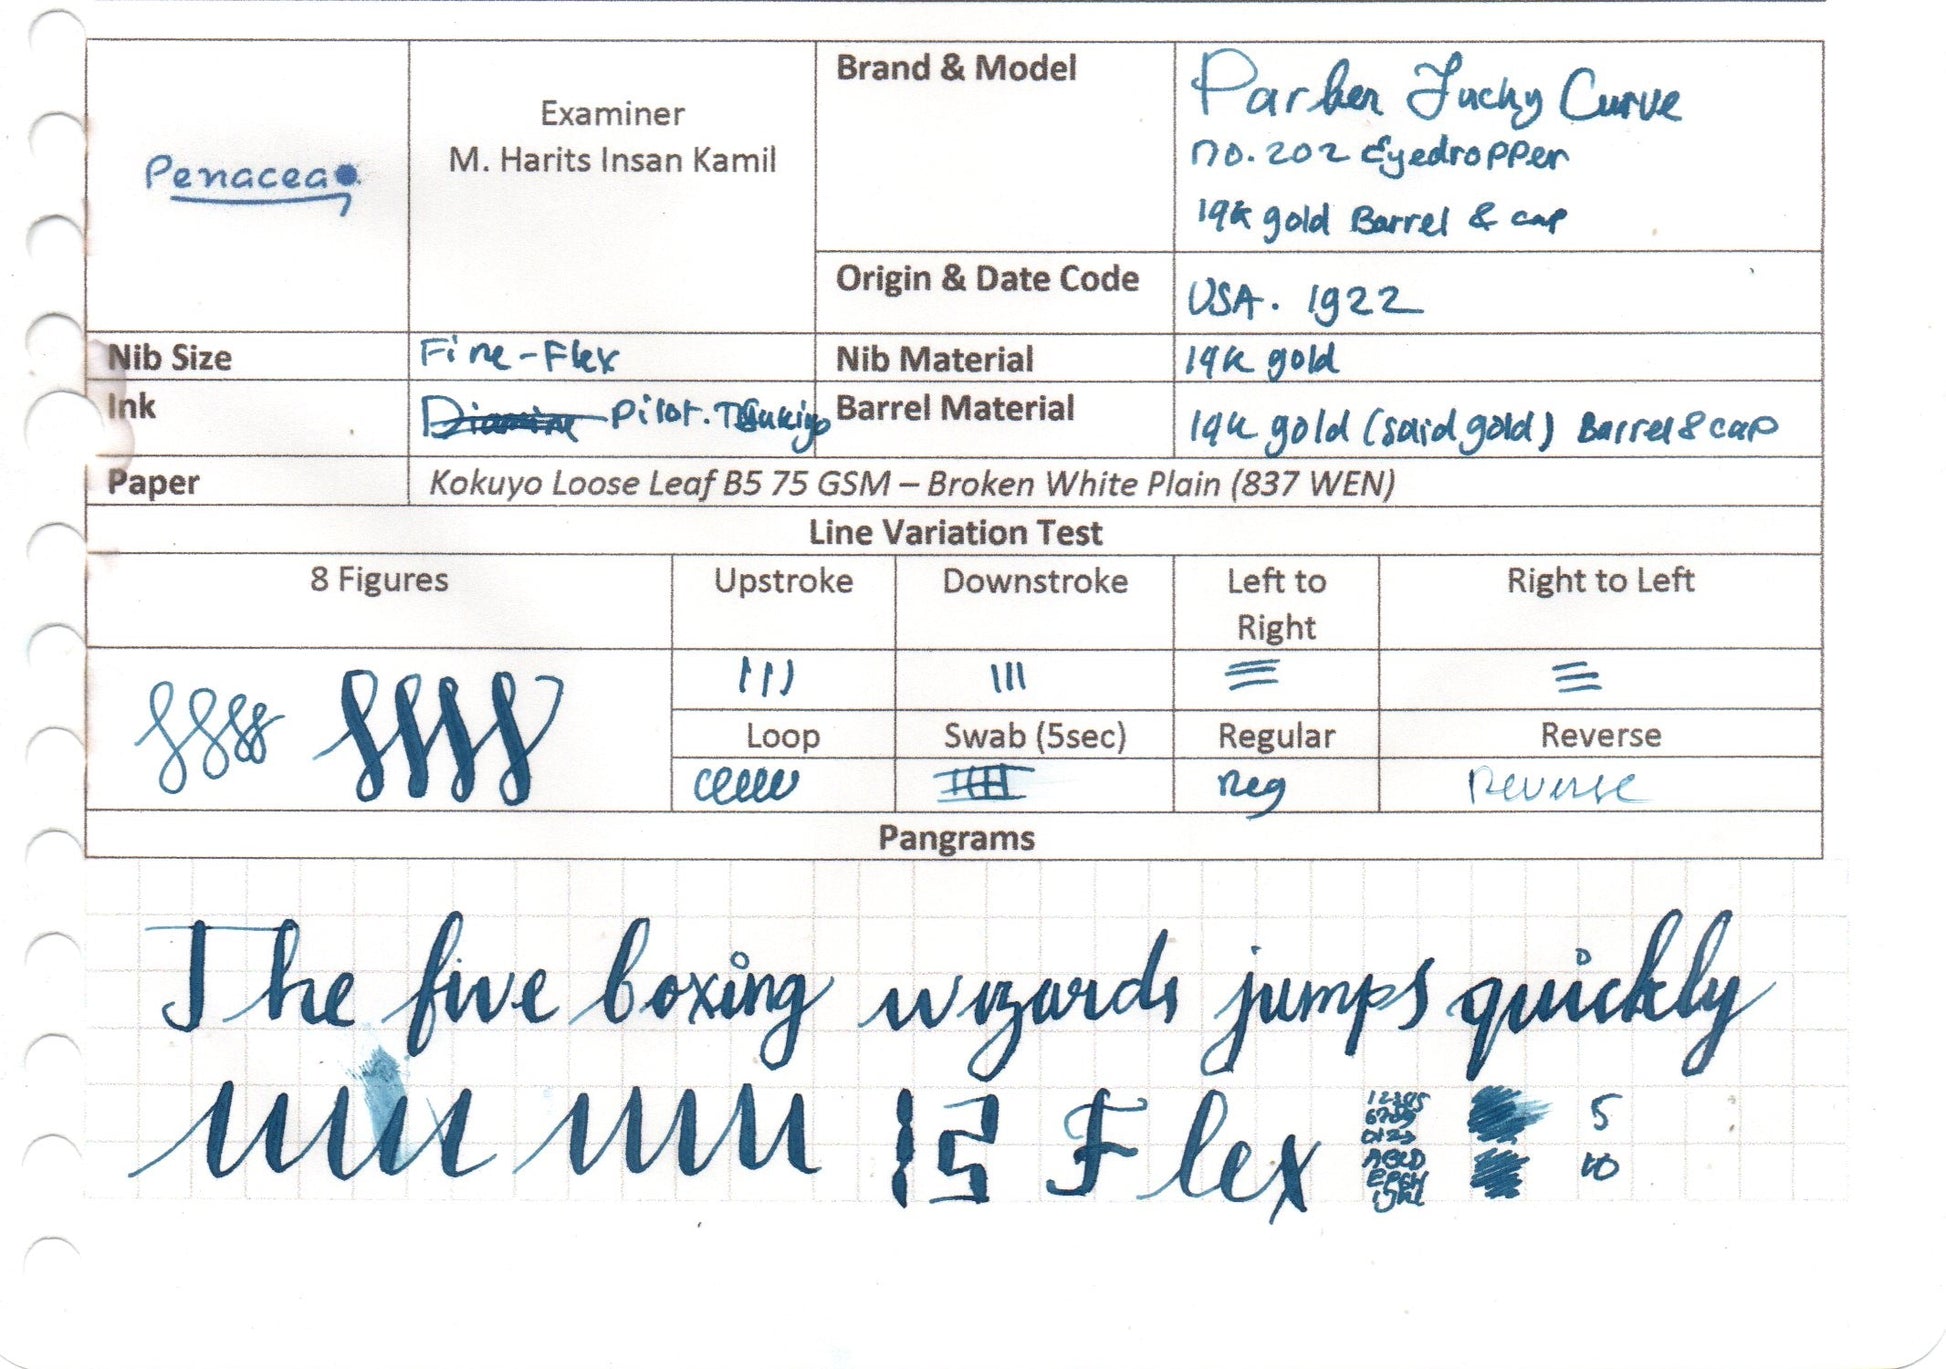 Penacea
Examiner
M. Harits Insan Kamil
Brand & Model
Parker Lucky Curve
no. 202 Eyedropper
14k gold Barrel & cap
Origin & Date Code
USA. 1922
Nib Size
Fine-Flex
Nib Material
14k gold
Ink
Diamine Pilot. Tsukiyo
Barrel Material
14k gold (solid gold) Barrel & cap
Paper
Kokuyo Loose Leaf B5 75 GSM – Broken White Plain (837 WEN)
Line Variation Test
8 Figures
Upstroke
Downstroke
Left to
Right
Right to Left
Loop
Swab (5sec)
Regular
Reverse
Reg
Reverse
Pangrams
The five boxing wizards jumps quickly
Flex
12345
6789
0123
ABCD
EFGH
5
10